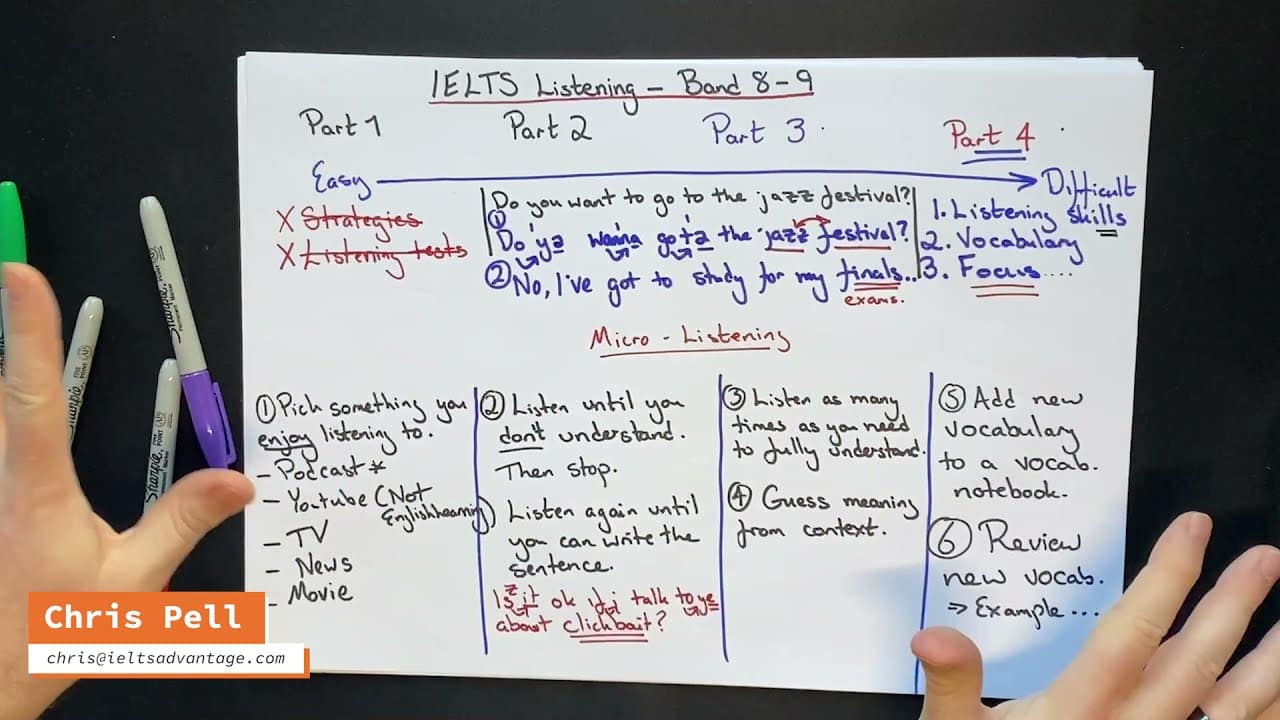 IELTS Listening - Band 8-9
Part 1 Part 2 Part 3 Part 4
Easy Difficult
X Strategies
X Listening tests
Do you want to go to the jazz festival?
① Do ya wanna gota the jazz festival?
② No, I've got to study for my finals...
exams.
1. Listening skills
2. Vocabulary
3. Focus....
Micro - Listening
① Pick something you
enjoy listening to.
- Podcast *
- Youtube (Not
English learning)
- TV
- News
- Movie
② Listen until you
don't understand.
Then stop.
Listen again until
you can write the
sentence.
Is it ok if i talk to ye
about clickbait?
③ Listen as many
times as you need
to fully understand.
④ Guess meaning
from context.
⑤ Add new
vocabulary
to a vocab.
notebook.
⑥ Review
new vocab.
⇒ Example...
Chris Pell
chris@ieltsadvantage.com
Sharpie
Sharpie